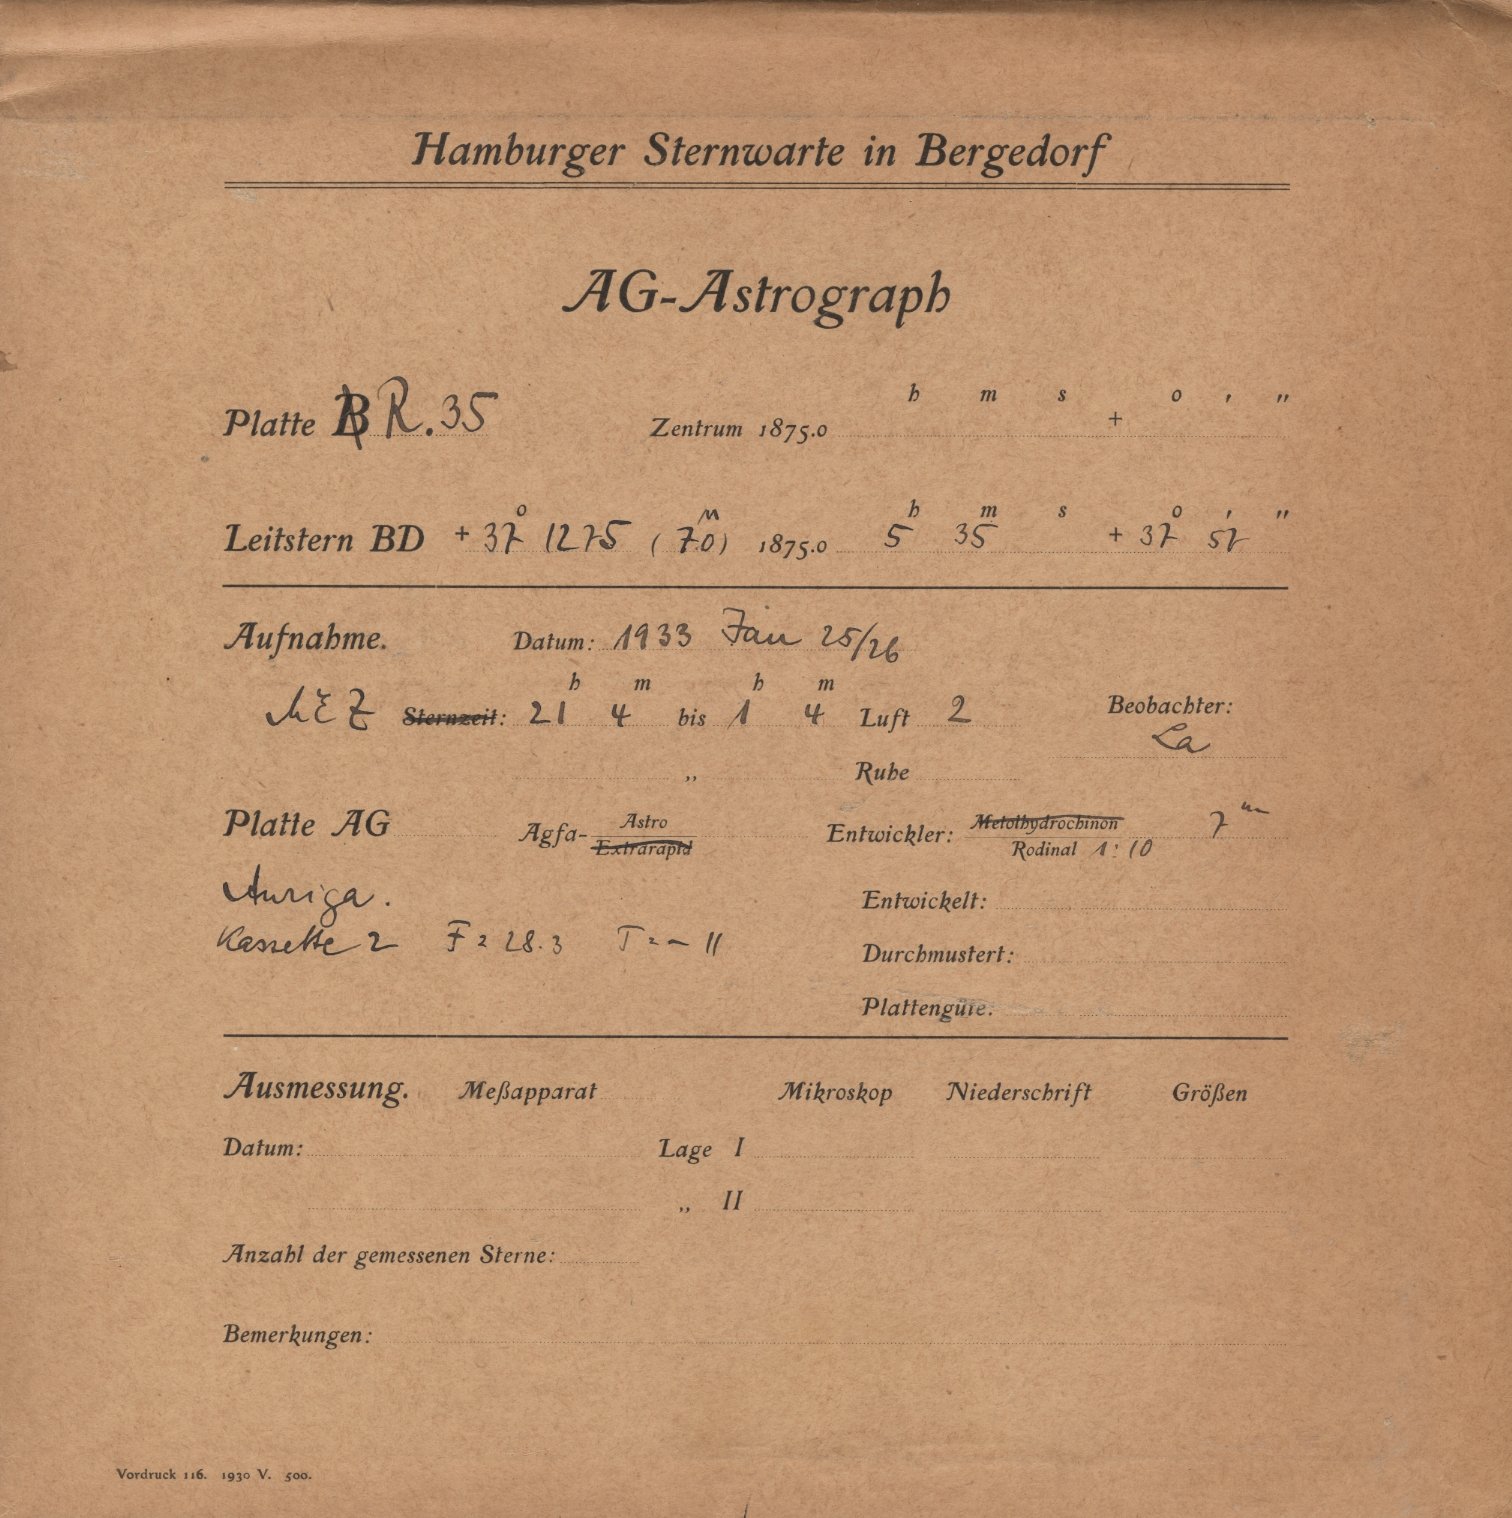 Hamburger Sternwarte in Bergedorf
AG-Astrograph
h m s o ' "
Platte B R.35 Zentrum 1875.0 +
o M h m s o ' "
Leitstern BD + 37 1275 (7.0) 1875.0 5 35 + 37 57
Aufnahme. Datum: 1933 Jan 25/26
h m h m
MEZ Sternzeit: 21 4 bis 1 4 Luft 2 Beobachter:
La
„ Ruhe
Platte AG Agfa- Astro Extrarapid Entwickler: Metolhydrochinon Rodinal 1:10 7 m
Auriga. Entwickelt:
Kassette 2 F = 28.3 T = - 11 Durchmustert:
Plattengüte:
Ausmessung. Meßapparat Mikroskop Niederschrift Größen
Datum: Lage I
„ II
Anzahl der gemessenen Sterne:
Bemerkungen:
Vordruck 116. 1930 V. 500.